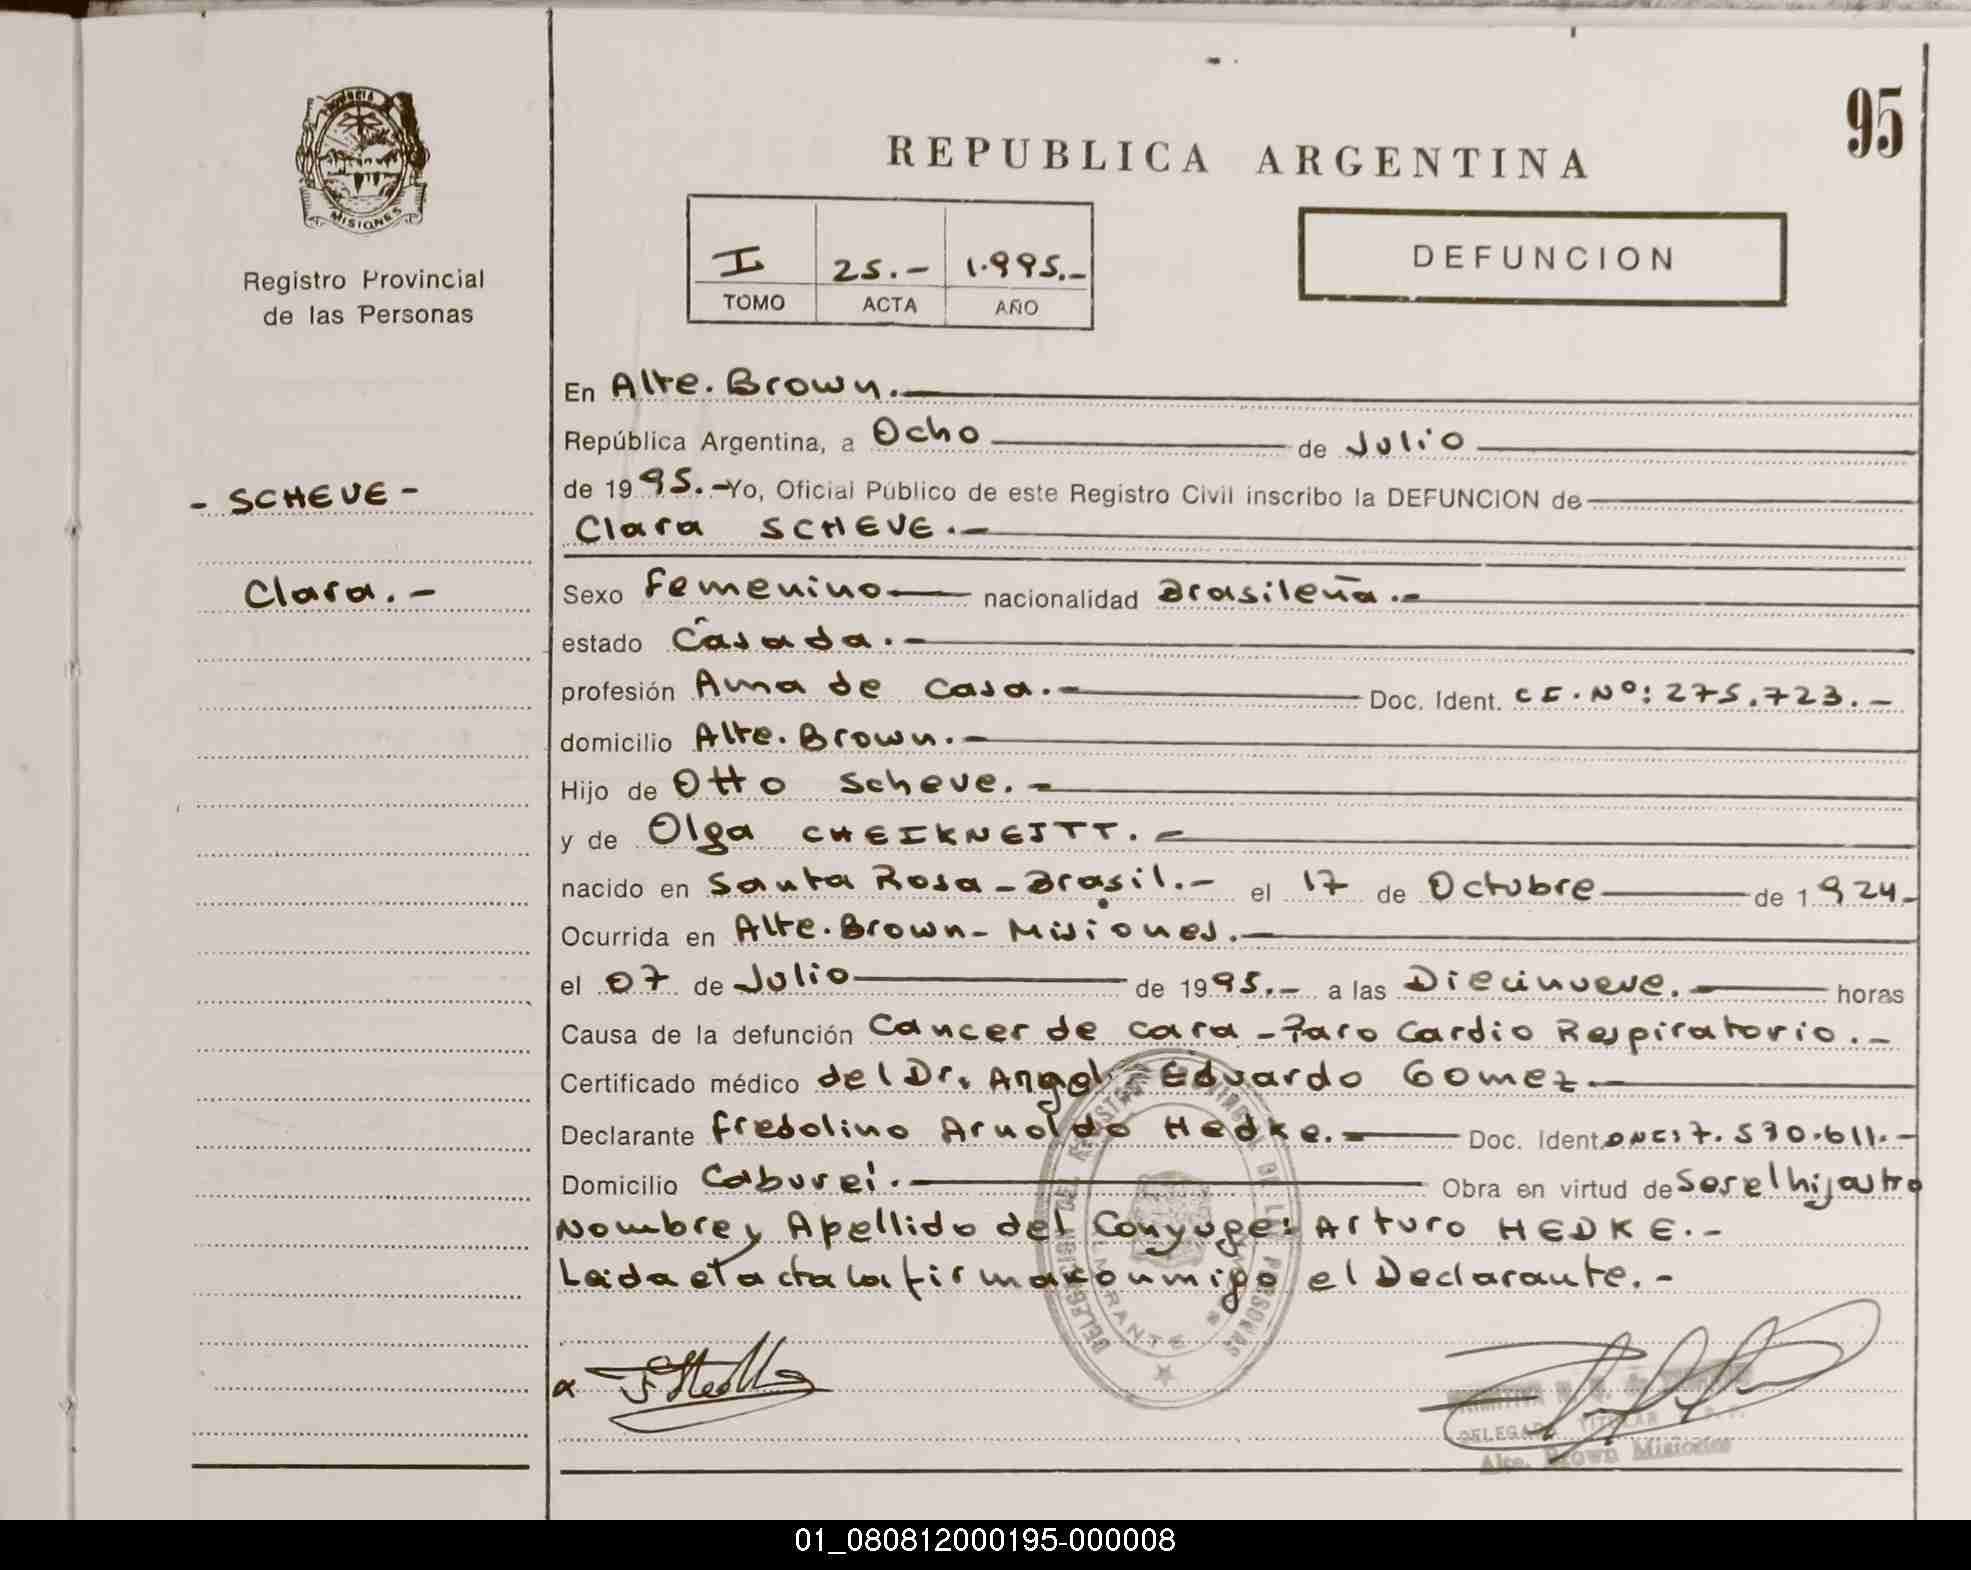 PROVINCIA
MISIONES
Registro Provincial
de las Personas
- SCHEVE -
Clara.-
95
REPUBLICA ARGENTINA
I 25.- 1.995.-
TOMO ACTA AÑO
DEFUNCION
En Alte. Brown.-
República Argentina, a Ocho de Julio
de 1995.- Yo, Oficial Público de este Registro Civil inscribo la DEFUNCION de
Clara SCHEVE.-
Sexo Femenino nacionalidad Brasileña.-
estado Casada.-
profesión Ama de casa.- Doc. Ident. CI. Nº: 275.723.-
domicilio Alte. Brown.-
Hijo de Otto Scheve.-
y de Olga CHEIKNEITT.-
nacido en Santa Rosa - Brasil.- el 17 de Octubre de 1924.-
Ocurrida en Alte. Brown - Misiones.-
el 07 de Julio de 1995.- a las Diecinueve.- horas
Causa de la defunción Cancer de cara - Paro Cardio Respiratorio.-
Certificado médico del Dr. Angel Eduardo Gomez.-
Declarante Fredolino Arnoldo Hedke.- Doc. Ident. DNI: 7.570.611.-
Domicilio Caburei.- Obra en virtud de Ser el hijastro
Nombre y Apellido del Conyuge: Arturo HEDKE.-
Leida el acta la firma conmigo el Declarante.-
DELEGACION DEL REGISTRO PROVINCIAL DE LAS PERSONAS
ALMIRANTE
DELEGADA TITULAR
Alte. Brown Misiones
01_080812000195-000008